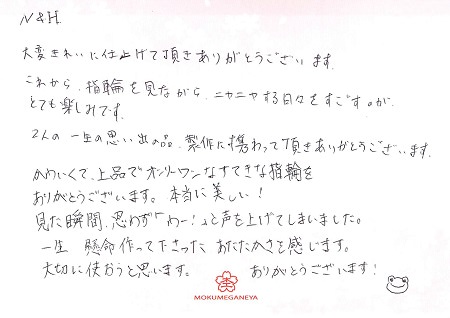 N&H
大変きれいに仕上げて頂きありがとうございます。
これから、指輪を見ながら、ニヤニヤする日々をすごすのが、
とても楽しみです。
2人の一生の思い出の品、製作に携わって頂きありがとうございます。
かわいくて、上品でオンリーワンなすてきな指輪を
ありがとうございます。本当に美しい！
見た瞬間、思わず「わー！」と声を上げてしまいました。
一生懸命作って下さった あたたかさを感じます。
大切に使おうと思います。 ありがとうございます！
MOKUMEGANEYA